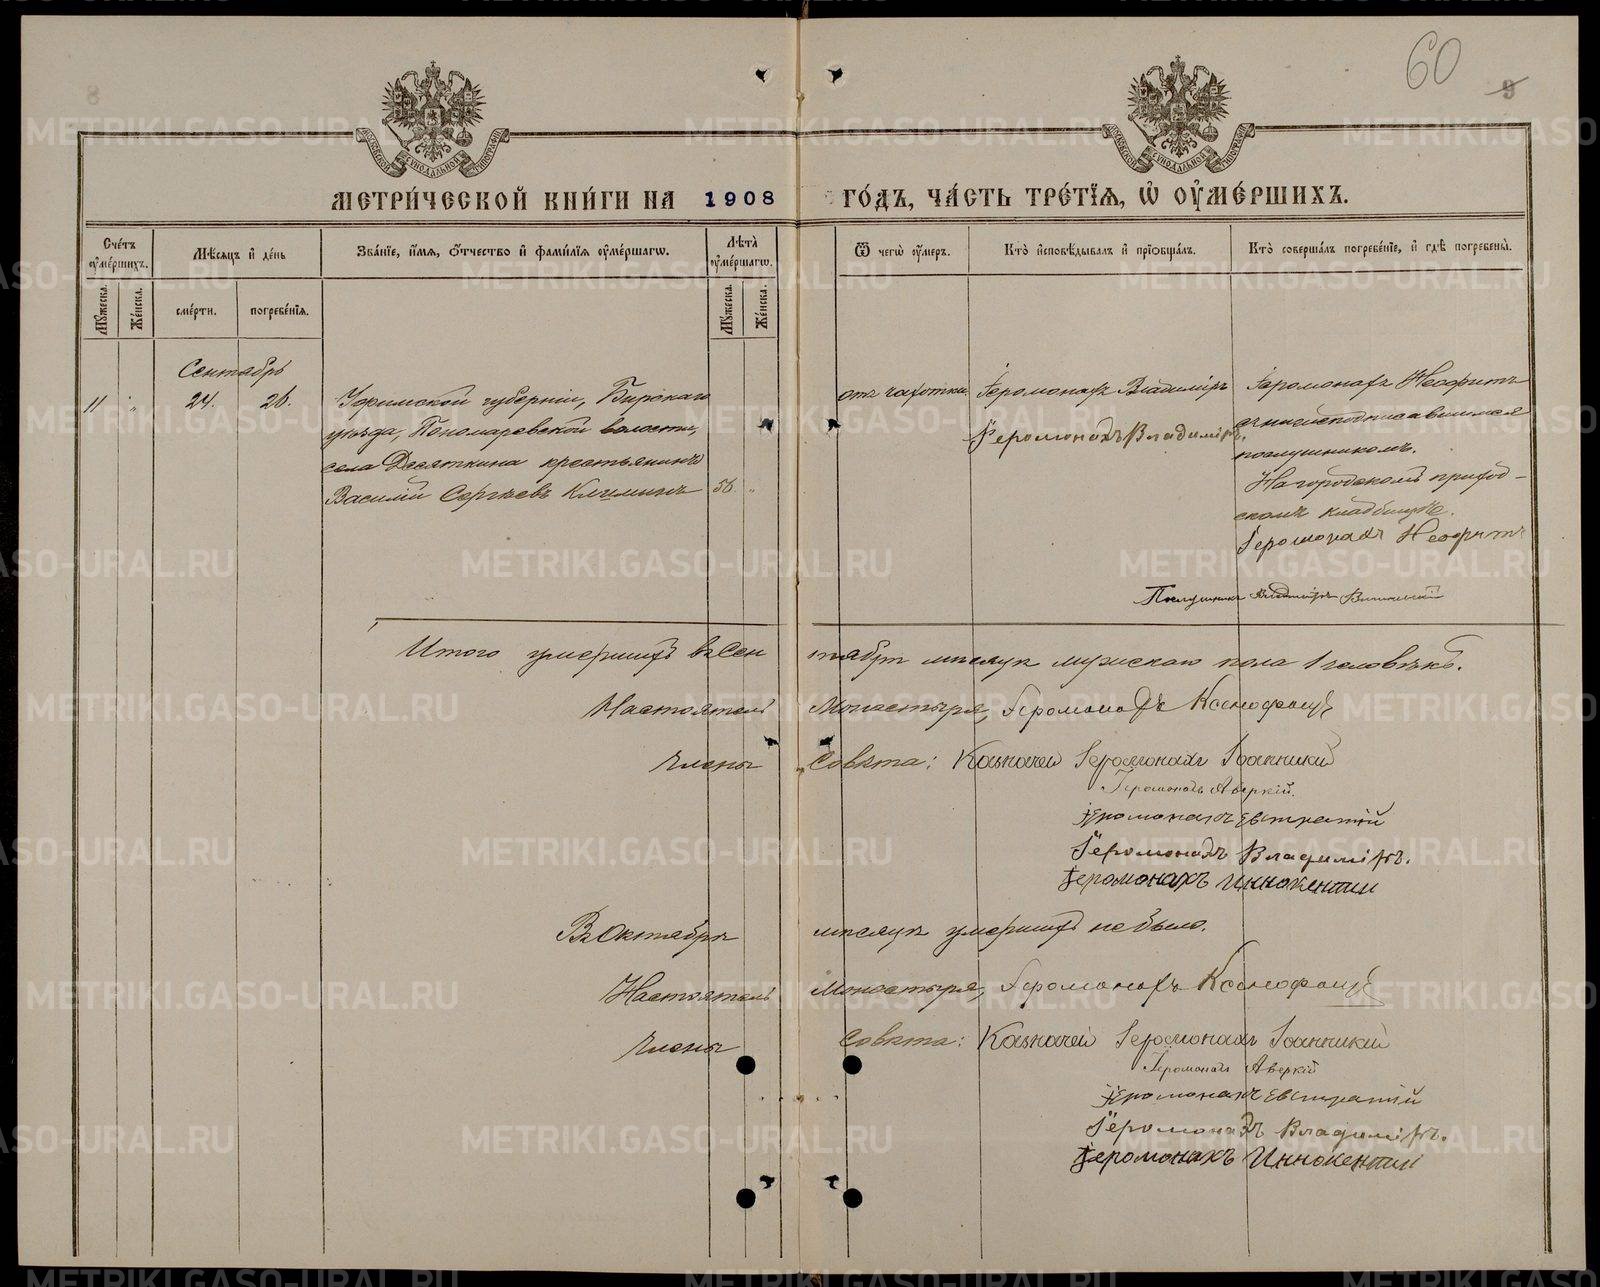 60
8
9
МОСКОВСКОЙ СѴНОДАЛЬНОЙ ТИПОГРАФІИ
МОСКОВСКОЙ СѴНОДАЛЬНОЙ ТИПОГРАФІИ
МЕТРИ́ЧЕСКОЙ КНИ́ГИ НА 1908 ГО́ДЪ, ЧА́СТЬ ТРЕ́ТІЯ, Ѡ ОУМЕ́РШИХЪ.
Сче́тъ оуме́ршихъ.
Мѣ́сяцъ и де́нь
Зва́ніе, и́мя, о́тчество и фами́лія оуме́ршагѡ.
Лѣ́та оуме́ршагѡ.
Ѿ чегѡ̀ оу́меръ.
Кто̀ исповѣ́дывалъ и пріобща́лъ.
Кто̀ соверша́лъ погребе́ніе, и гдѣ̀ погребены̀.
Мꙋ́жеска.
Же́нска.
сме́рти.
погребе́нія.
Мꙋ́жеска.
Же́нска.
Сентябрь
11 " 24. 26. Уфимской губерніи, Бирскаго
уѣзда, Пономаревской волости,
села Десяткина крестьянинъ
Василій Сергѣевъ Климинъ 56. "
отъ чахотки.
Іеромонахъ Владиміръ
Іеромонахъ Владиміръ.
Іеромонахъ Неофитъ
съ нижеподписавшимся
послушникомъ.
На городскомъ приход-
скомъ кладбищѣ.
Іеромонахъ Неофитъ
Послушникъ Владиміръ
Итого умершихъ въ Сентябрѣ мѣсяцѣ мужскаго пола 1 человѣкъ.
Настоятель Монастыря, Іеромонахъ Ксенофонтъ
Члены Совѣта: Казначей Іеромонахъ Іоанникій
Іеромонахъ Аверкій.
Іеромонахъ Евстратій
Іеромонахъ Владиміръ.
Іеромонахъ Иннокентій
Въ Октябрѣ мѣсяцѣ умершихъ не было.
Настоятель Монастыря, Іеромонахъ Ксенофонтъ
Члены Совѣта: Казначей Іеромонахъ Іоанникій
Іеромонахъ Аверкій
Іеромонахъ Евстратій
Іеромонахъ Владиміръ.
Іеромонахъ Иннокентій
METRIKI.GASO-URAL.RU